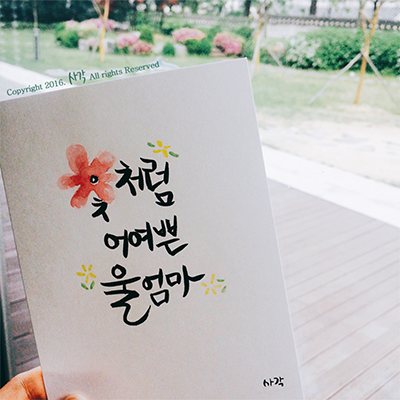 Copyright 2016. 사각 All rights Reserved
꽃처럼
어여쁜
울엄마
사각